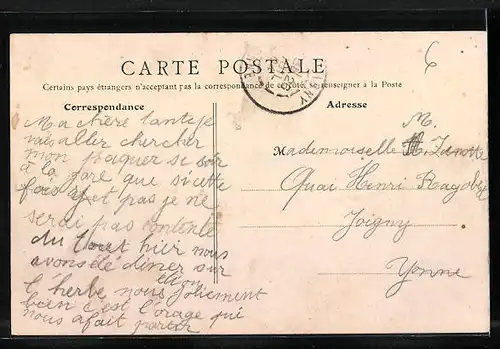 CARTE POSTALE
Certains pays étrangers n'acceptant pas la correspondance de ce côté, se renseigner à la Poste
Correspondance
Ma chère tante je
vais aller chercher
mon paquer se soir
à la gare que si cette
fois et pas je ne
serai pas contente
du tout hier nous
avons été diner sur
l'herbe nous étion joliement
bien c'est l'orage qui
nous a fait partir
Adresse
M.
Mademoiselle Zanotte
Quai Henri Ragobert
Joigny
Yonne
6